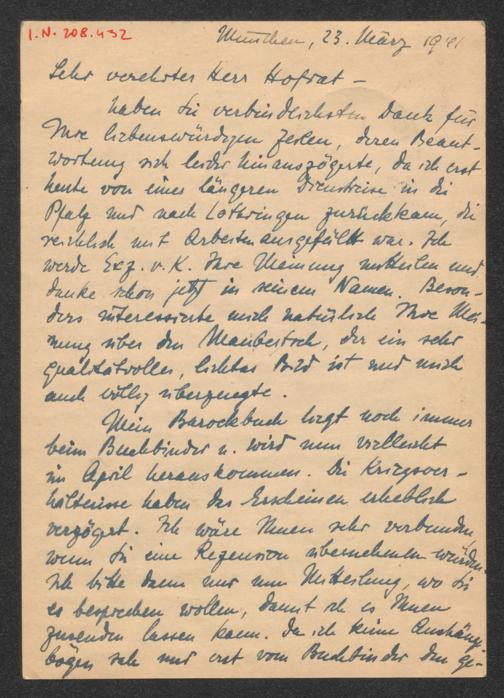 I.N. 208.432
München, 23. März 1941
Sehr verehrter Herr Hofrat –
haben Sie verbindlichsten Dank für
Ihre liebenswürdigen Zeilen, deren Beant-
wortung sich leider hinauszögerte, da ich erst
heute von einer längeren Dienstreise in die
Pfalz und nach Lothringen zurückkam, die
reichlich mit Arbeiten ausgefüllt war. Ich
werde Exz. v. K. Ihre Meinung mitteilen und
danke schon jetzt in seinem Namen. Beson-
ders interessierte mich natürlich Ihre Mei-
nung über den Maulbertsch, der ein sehr
qualitätvolles, lichtes Bild ist und mich
auch völlig überzeugte.
Mein Barockbuch liegt noch immer
beim Buchbinder u. wird nun vielleicht
im April herauskommen. Die Kriegsver-
hältnisse haben das Erscheinen erheblich
verzögert. Ich wäre Ihnen sehr verbunden,
wenn Sie eine Rezension übernehmen würden.
Ich bitte dann nur um Mitteilung, wo Sie
es besprechen wollen, damit ich es Ihnen
zusenden lassen kann. Da ich keine Aushänge-
bögen sah und erst vom Buchbinder den ge-